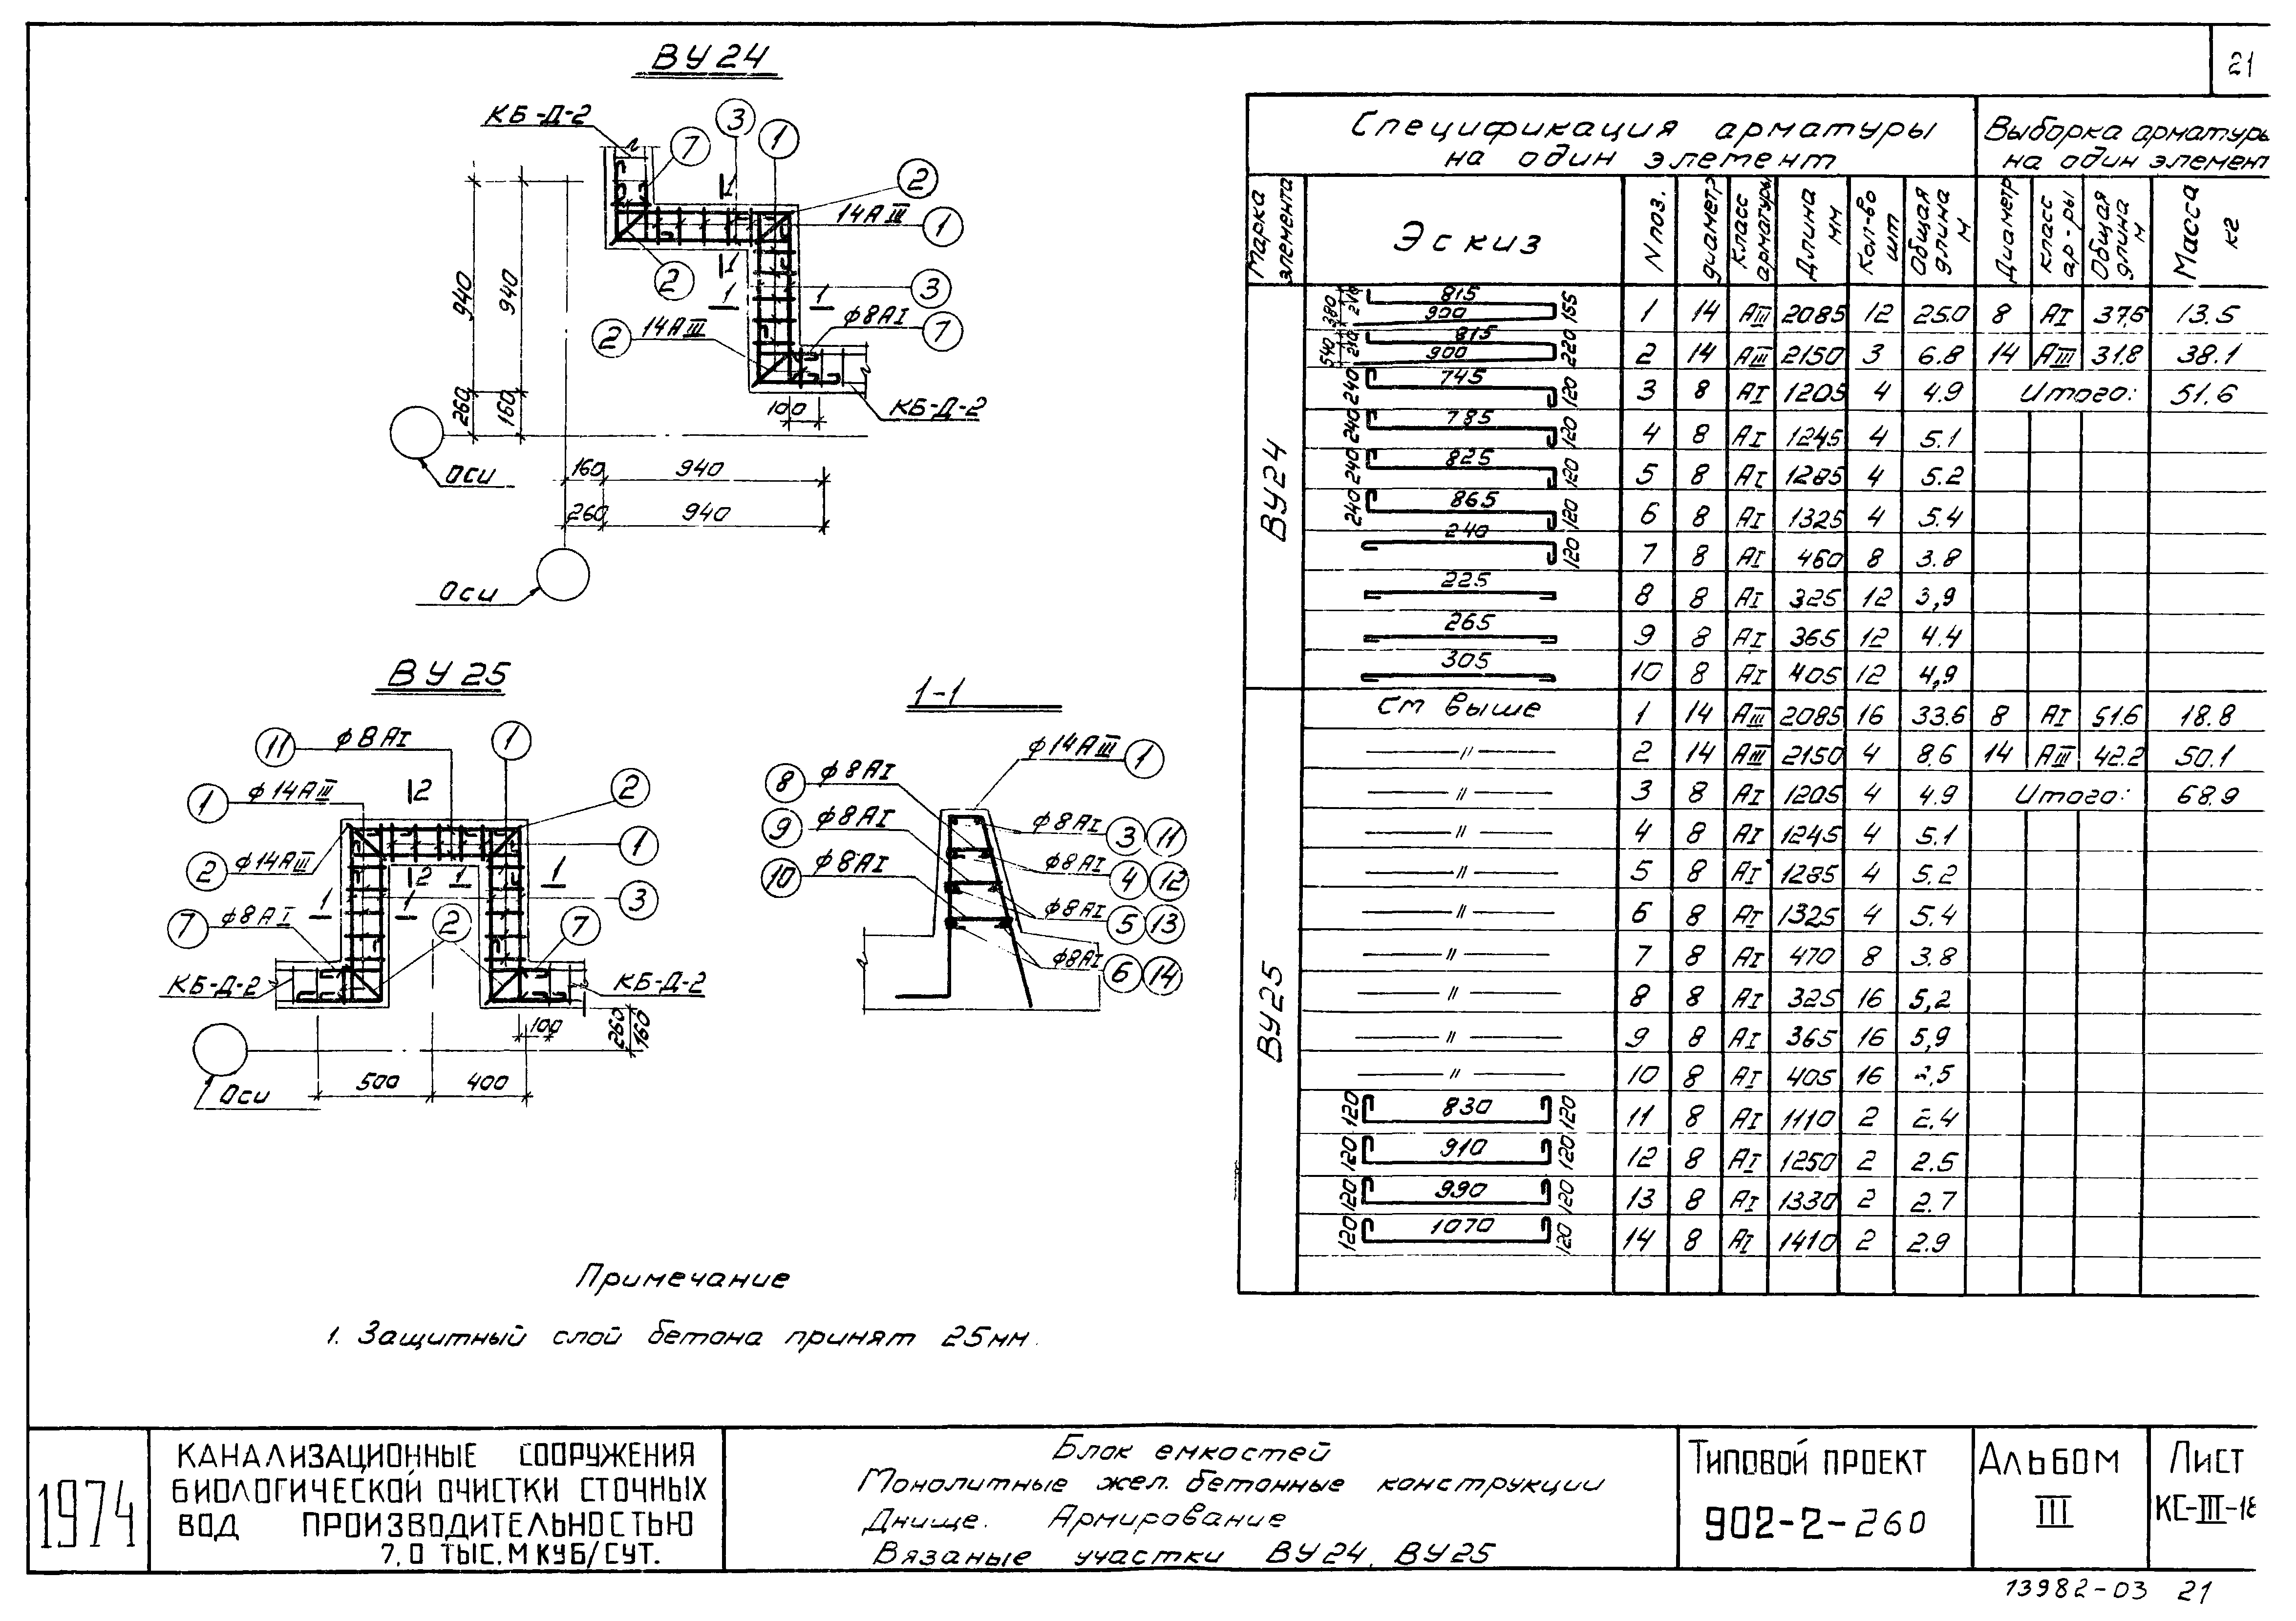 21
ВУ24
КБ-Д-2
3
1
7
2
14АIII
1
1
2
1
3
1 1
2
14АIII
ф8АI
7
КБ-Д-2
100
940
940
260
160
Оси
160 940
260 940
Оси
ВУ25
11
ф8АI
1
1
ф14АIII
2
2
1
2
ф14АIII
2
1
1
3
1
1
7
ф8АI
2
7
КБ-Д-2
КБ-Д-2
100
260
160
500 400
Оси
1-1
ф14АIII
1
8
ф8АI
9
ф8АI
ф8АI
3 11
10
ф8АI
ф8АI
4 12
ф8АI
5 13
ф8АI
6 14
Спецификация арматуры
на один элемент
Выборка арматуры
на один элемент
Марка элемента Эскиз N поз. диаметр Класс арматуры Длина мм Кол-во шт Общая длина м Диаметр класс ар-ры Общая длина м Масса кг
ВУ24
380 210 815 900 155 1 14 АIII 2085 12 25.0 8 АI 37,6 13.5
540 210 815 900 220 2 14 АIII 2150 3 6.8 14 АIII 31.8 38.1
240 745 120 3 8 АI 1205 4 4.9 Итого: 51.6
240 785 120 4 8 АI 1245 4 5.1
240 825 120 5 8 АI 1285 4 5.2
240 865 120 6 8 АI 1325 4 5.4
240 120 7 8 АI 460 8 3.8
225 8 8 АI 325 12 3,9
265 9 8 АI 365 12 4.4
305 10 8 АI 405 12 4,9
ВУ25
См выше 1 14 АIII 2085 16 33.6 8 АI 51.6 18.8
—〃— 2 14 АIII 2150 4 8.6 14 АIII 42.2 50.1
—〃— 3 8 АI 1205 4 4.9 Итого: 68.9
—〃— 4 8 АI 1245 4 5.1
—〃— 5 8 АI 1285 4 5.2
—〃— 6 8 АI 1325 4 5.4
—〃— 7 8 АI 470 8 3.8
—〃— 8 8 АI 325 16 5,2
—〃— 9 8 АI 365 16 5,9
—〃— 10 8 АI 405 16
120 830 120 11 8 АI 1110 2 2.4
120 910 120 12 8 АI 1250 2 2.5
120 990 120 13 8 АI 1330 2 2.7
120 1070 120 14 8 АI 1410 2 2.9
Примечание
1. Защитный слой бетона принят 25мм.
1974
КАНАЛИЗАЦИОННЫЕ СООРУЖЕНИЯ
БИОЛОГИЧЕСКОЙ ОЧИСТКИ СТОЧНЫХ
ВОД ПРОИЗВОДИТЕЛЬНОСТЬЮ
7,0 ТЫС.М КУБ/СУТ.
Блок емкостей
Монолитные жел. бетонные конструкции
Днище. Армирование
Вязаные участки ВУ24, ВУ25
ТИПОВОЙ ПРОЕКТ
902-2-260
АЛЬБОМ
III
ЛИСТ
КС-III-18
13982-03 21